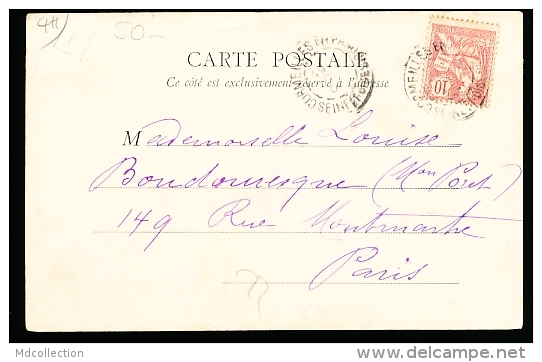 411
50-
CARTE POSTALE
Ce côté est exclusivement réservé à l'adresse
10
Mademoiselle Louise
Boudouresque (Mon Poret)
149 Rue Montmartre
Paris
Mdcollection
delcampe.net